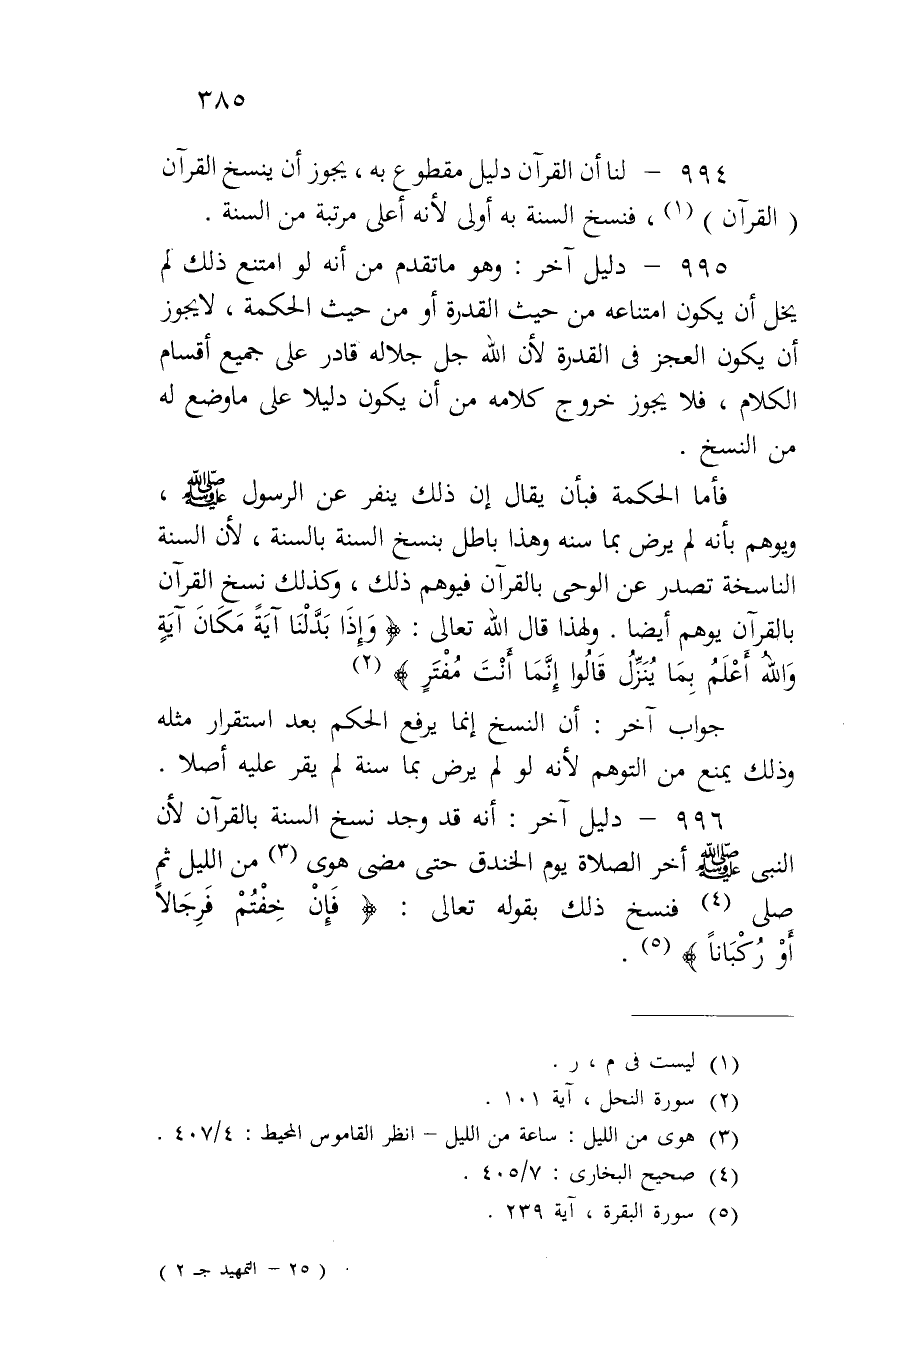 ٣٨٥
٩٩٤ – لنا أن القرآن دليل مقطوع به ، يجوز أن ينسخ القرآن
( القرآن ) (١) ، فنسخ السنة به أولى لأنه أعلى مرتبة من السنة .
٩٩٥ – دليل آخر : وهو ماتقدم من أنه لو امتنع ذلك لم
يخل أن يكون امتناعه من حيث القدرة أو من حيث الحكمة ، لايجوز
أن يكون العجز فى القدرة لأن الله جل جلاله قادر على جميع أقسام
الكلام ، فلا يجوز خروج كلامه من أن يكون دليلا على ماوضع له
من النسخ .
فأما الحكمة فبأن يقال إن ذلك ينفر عن الرسول ﷺ ،
ويوهم بأنه لم يرض بما سنه وهذا باطل بنسخ السنة بالسنة ، لأن السنة
الناسخة تصدر عن الوحى بالقرآن فيوهم ذلك ، وكذلك نسخ القرآن
بالقرآن يوهم أيضا . ولهذا قال الله تعالى : ﴿ وَإِذَا بَدَّلْنَا آيَةً مَكَانَ آيَةٍ
وَاللهُ أَعْلَمُ بِمَا يُنَزِّلُ قَالُوا إِنَّمَا أَنْتَ مُفْتَرٍ ﴾ (٢)
جواب آخر : أن النسخ إنما يرفع الحكم بعد استقرار مثله
وذلك يمنع من التوهم لأنه لو لم يرض بما سنة لم يقر عليه أصلا .
٩٩٦ – دليل آخر : أنه قد وجد نسخ السنة بالقرآن لأن
النبى ﷺ أخر الصلاة يوم الخندق حتى مضى هوى (٣) من الليل ثم
صلى (٤) فنسخ ذلك بقوله تعالى : ﴿ فَإِنْ خِفْتُمْ فَرِجَالاً
أَوْ رُكْبَاناً ﴾ (٥) .
(١) ليست فى م ، ر .
(٢) سورة النحل ، آية ١٠١ .
(٣) هوى من الليل : ساعة من الليل – انظر القاموس المحيط : ٤٠٧/٤ .
(٤) صحيح البخارى : ٤٠٥/٧ .
(٥) سورة البقرة ، آية ٢٣٩ .
( ٢٥ – التمهيد جـ ٢ )